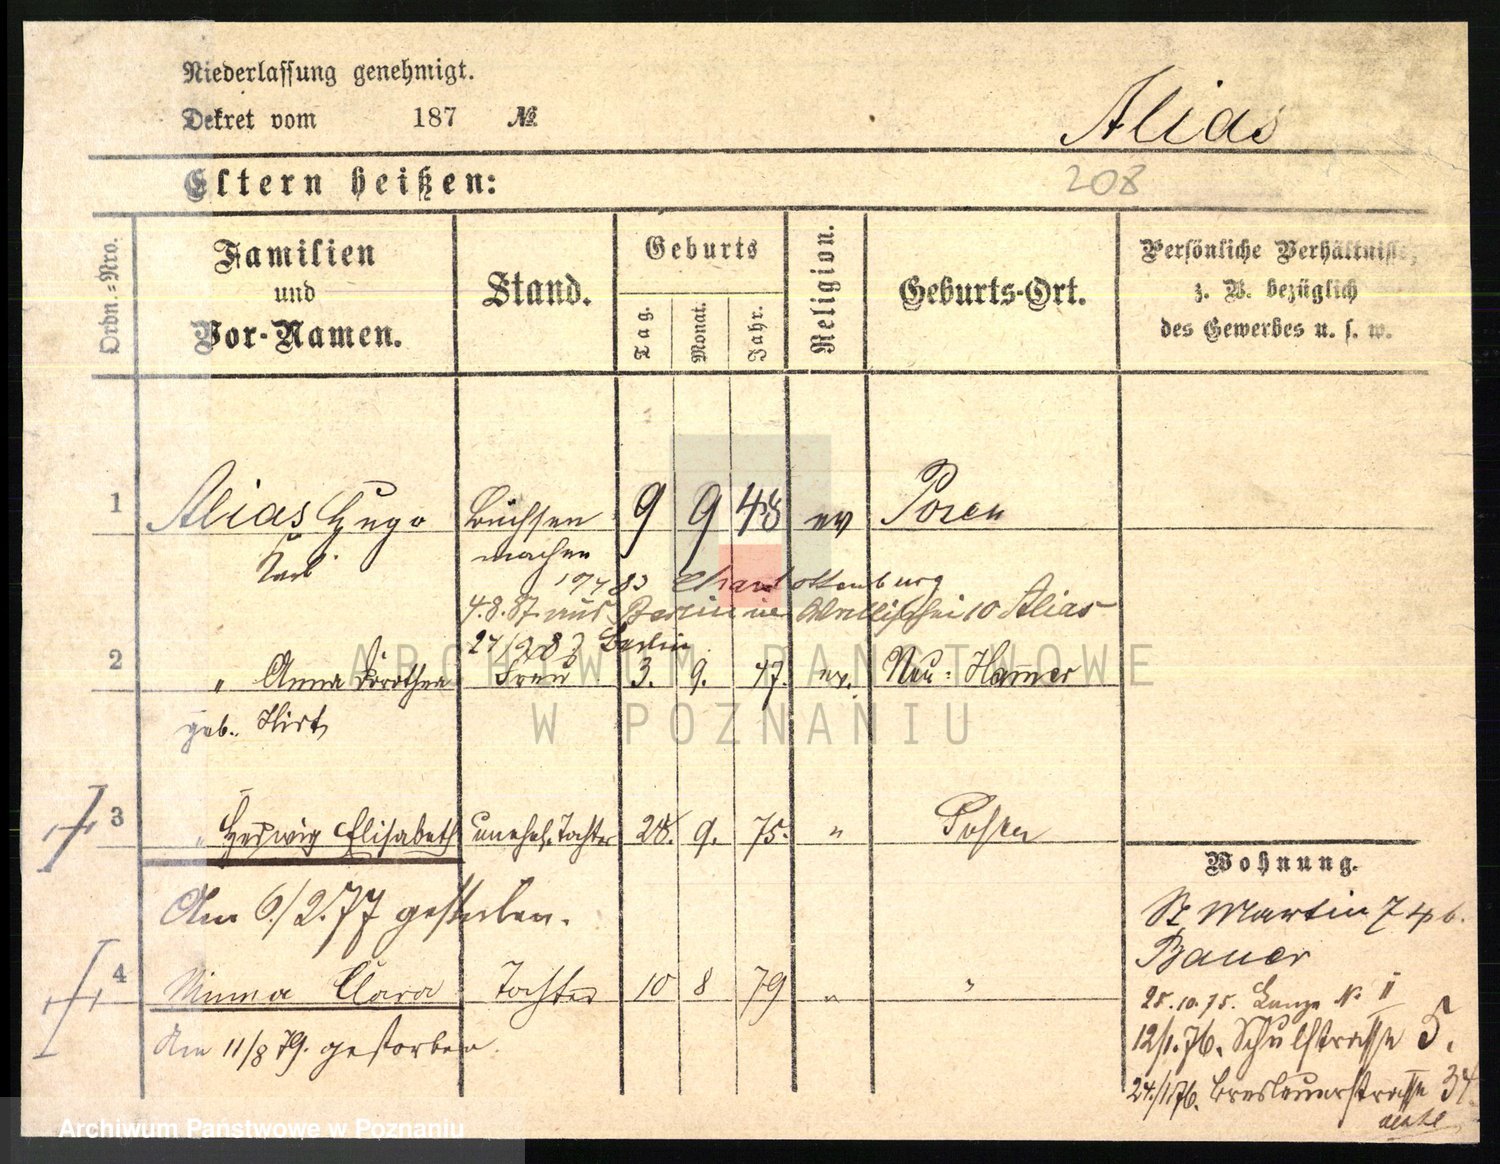 Niederlassung genehmigt.
Dekret vom 187 №
Alias
208
Eltern heißen:
Ordn.-Nro.
Familien und Vor-Namen.
Stand.
Geburts
Tag.
Monat.
Jahr.
Religion.
Geburts-Ort.
Persönliche Verhältnisse,
z. B. bezüglich
des Gewerbes u. s. w.
1 Alias Hugo Büchsen 9 9 48 ev Posen
Karl macher
83 Charlottenburg
4.8.87. aus Berlin 10 Alias
83 Berlin
2 " Anna Dorothea Frau 3. 9. 47. ev. Neu-Hamer
geb. Hirt
3 " Hedwig Elisabeth unehel. Tochter 28. 9. 75. " Posen
Am 6./2.77 gestorben.
4 Minna Clara Tochter 10 8 79 " "
Am 11/8 79. gestorben.
Wohnung.
St Martin 74 b.
Bauer
25.10.75. № II
12/1.76. Schulstrasse 5.
24./1 76. Breslauerstrasse 34
ARCHIWUM PAŃSTWOWE
W POZNANIU
Archiwum Państwowe w Poznaniu